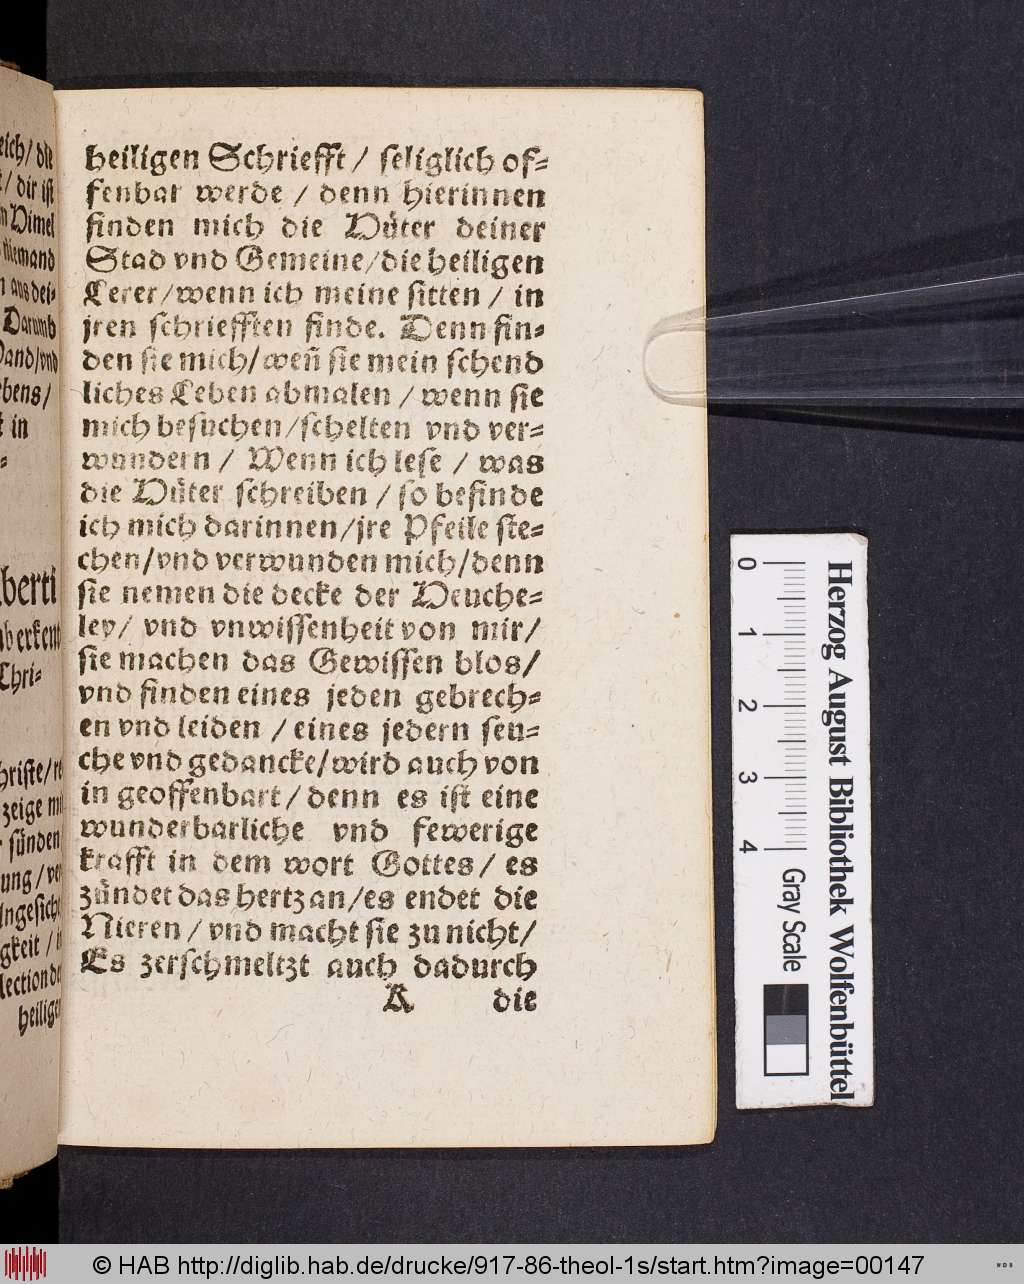 eich/ die
/ dir ist
Himel
niemand
aus dei-
Darumb
Hand/vnd
ebens/
in
berti
ab erkent
Chri-
hriste/
zeige
sünden
ung/
Angesicht
gkeit /
lection
heiligen
heiligen Schriefft / seliglich of-
fenbar werde / denn hierinnen
finden mich die Hüter deiner
Stad vnd Gemeine/die heiligen
Lerer/wenn ich meine sitten / in
jren schriefften finde. Denn fin-
den sie mich/weñ sie mein schend
liches Leben abmalen / wenn sie
mich besuchen/schelten vnd ver-
wundern / Wenn ich lese / was
die Hüter schreiben / so befinde
ich mich darinnen/jre Pfeile ste-
chen/vnd verwunden mich/denn
sie nemen die decke der Heuche-
ley/ vnd vnwissenheit von mir/
sie machen das Gewissen blos/
vnd finden eines jeden gebrech-
en vnd leiden / eines jedern seu-
che vnd gedancke/wird auch von
in geoffenbart/ denn es ist eine
wunderbarliche vnd fewerige
krafft in dem wort Gottes/ es
zündet das hertz an/es endet die
Nieren / vnd macht sie zu nicht/
Es zerschmeltzt auch dadurch
K die
0 1 2 3 4
Gray Scale
Herzog August Bibliothek Wolfenbüttel
© HAB http://diglib.hab.de/drucke/917-86-theol-1s/start.htm?image=00147